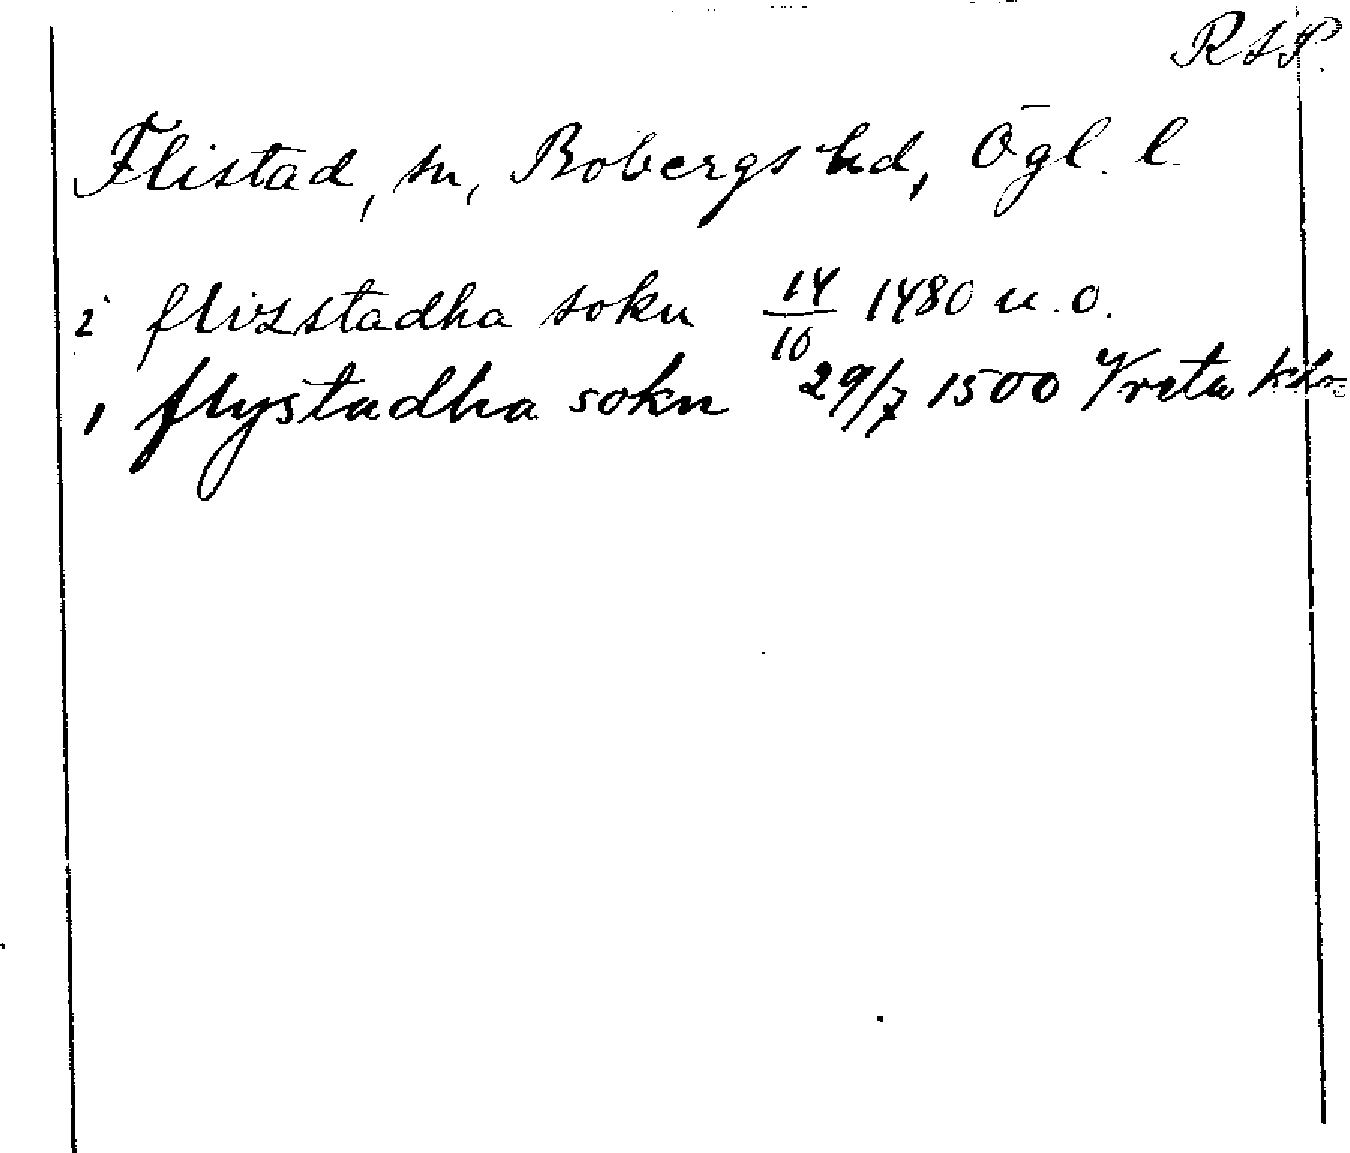 RAP.
Flistad, sn, Bobergs hd, Ögl. l.
i flizstadha sokn 14/10 1480 u. o.
, flystadha sokn 29/7 1500 Vreta klr